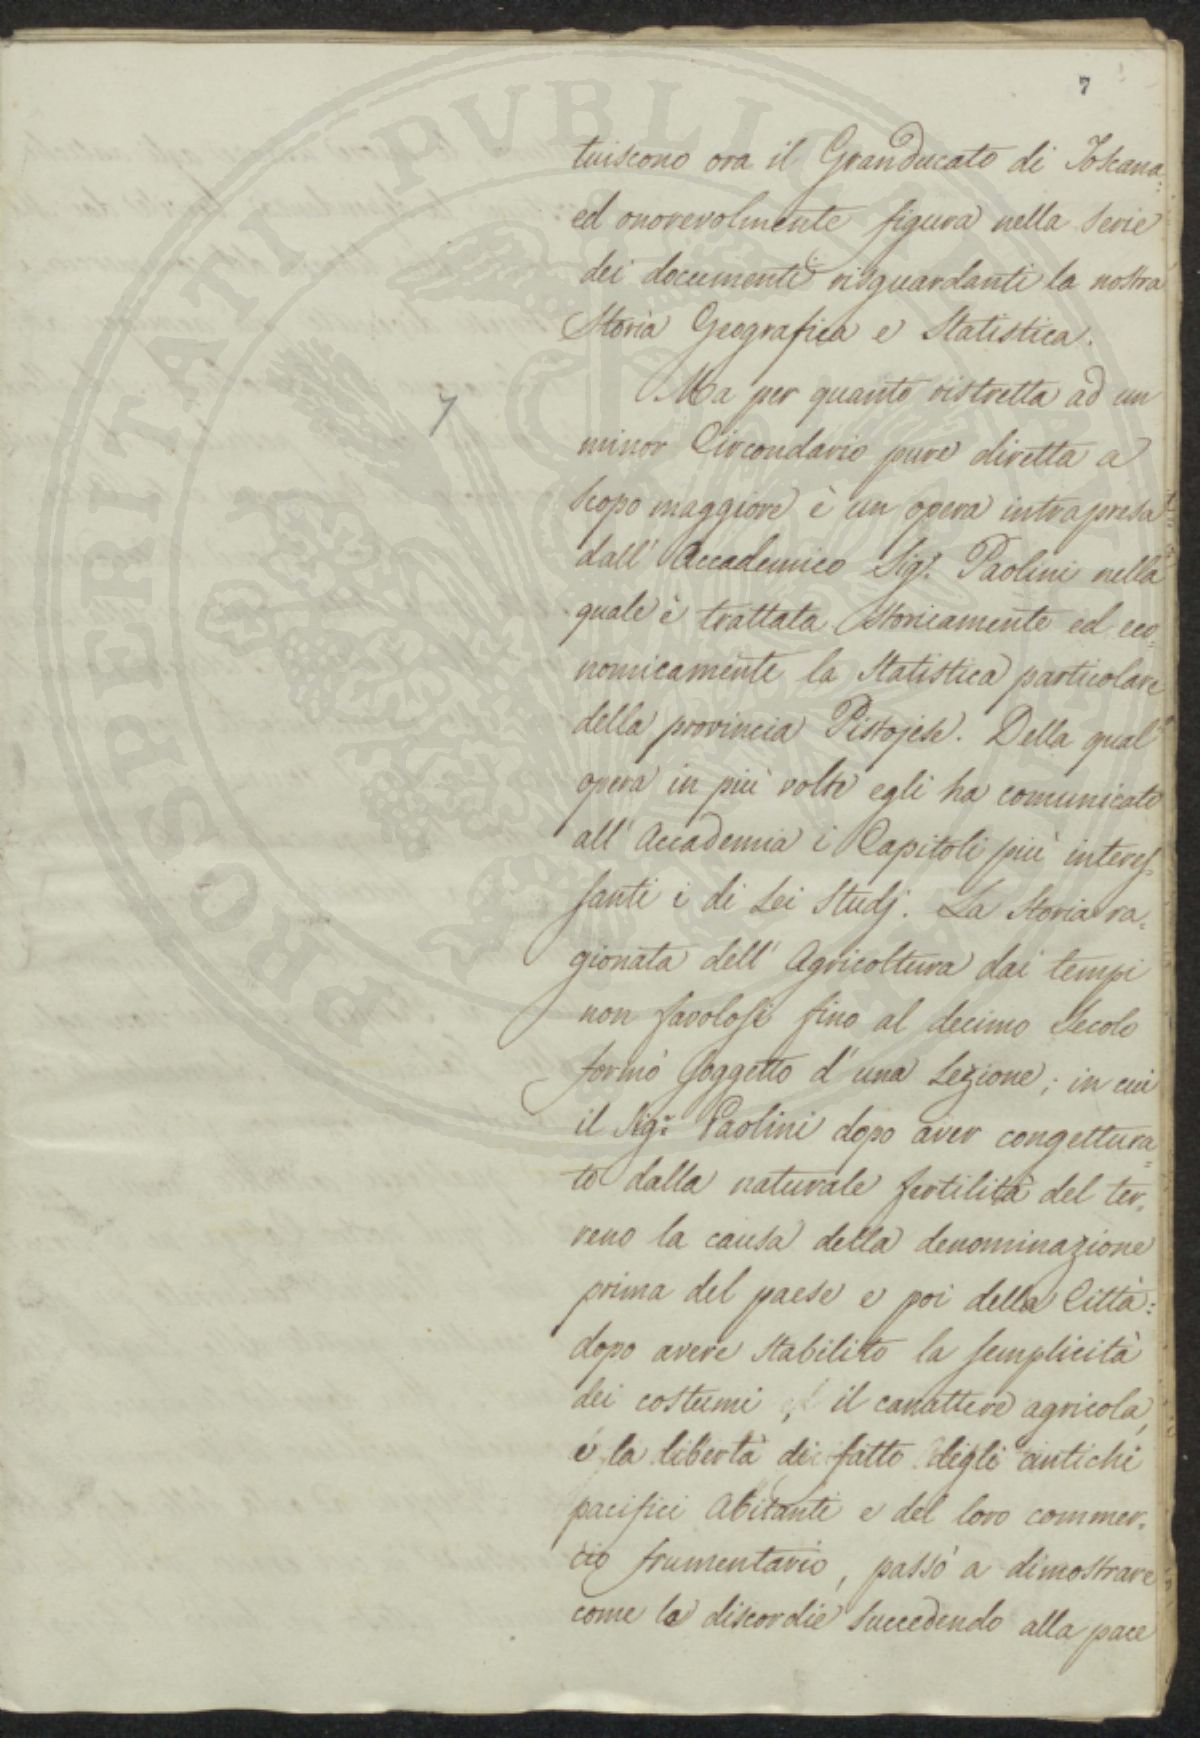 7
tuiscono ora il Granducato di Toscana
ed onorevolmente figura nella serie
dei documenti risguardanti la nostra
Storia Geografica e Statistica.
7
Ma per quanto ristretta ad un
minor Circondario pure diretta a
scopo maggiore è un opera intrapresa
dall' Accademico Sigr. Paolini nella
quale è trattata storicamente ed eco=
nomicamente la Statistica particolare
della provincia Pistojese. Della qual'
opera in più volte egli ha comunicato
all' Accademia i Capitoli più interes=
santi i di Lei Studj. La Storia ra=
gionata dell' Agricoltura dai tempi
non favolosi fino al decimo Secolo
formò soggetto d' una Lezione; in cui
il Sigr. Paolini dopo aver congettura=
to dalla naturale fertilità del ter=
reno la causa della denominazione
prima del paese e poi della Città:
dopo avere stabilito la semplicità
dei costumi, il carattere agricola,
e la libertà di fatto degli antichi
pacifici Abitanti e del loro commer=
cio frumentario, passò a dimostrare
come le discordie succedendo alla pace
PROSPERITATI PVBLICAE AVGENDAE